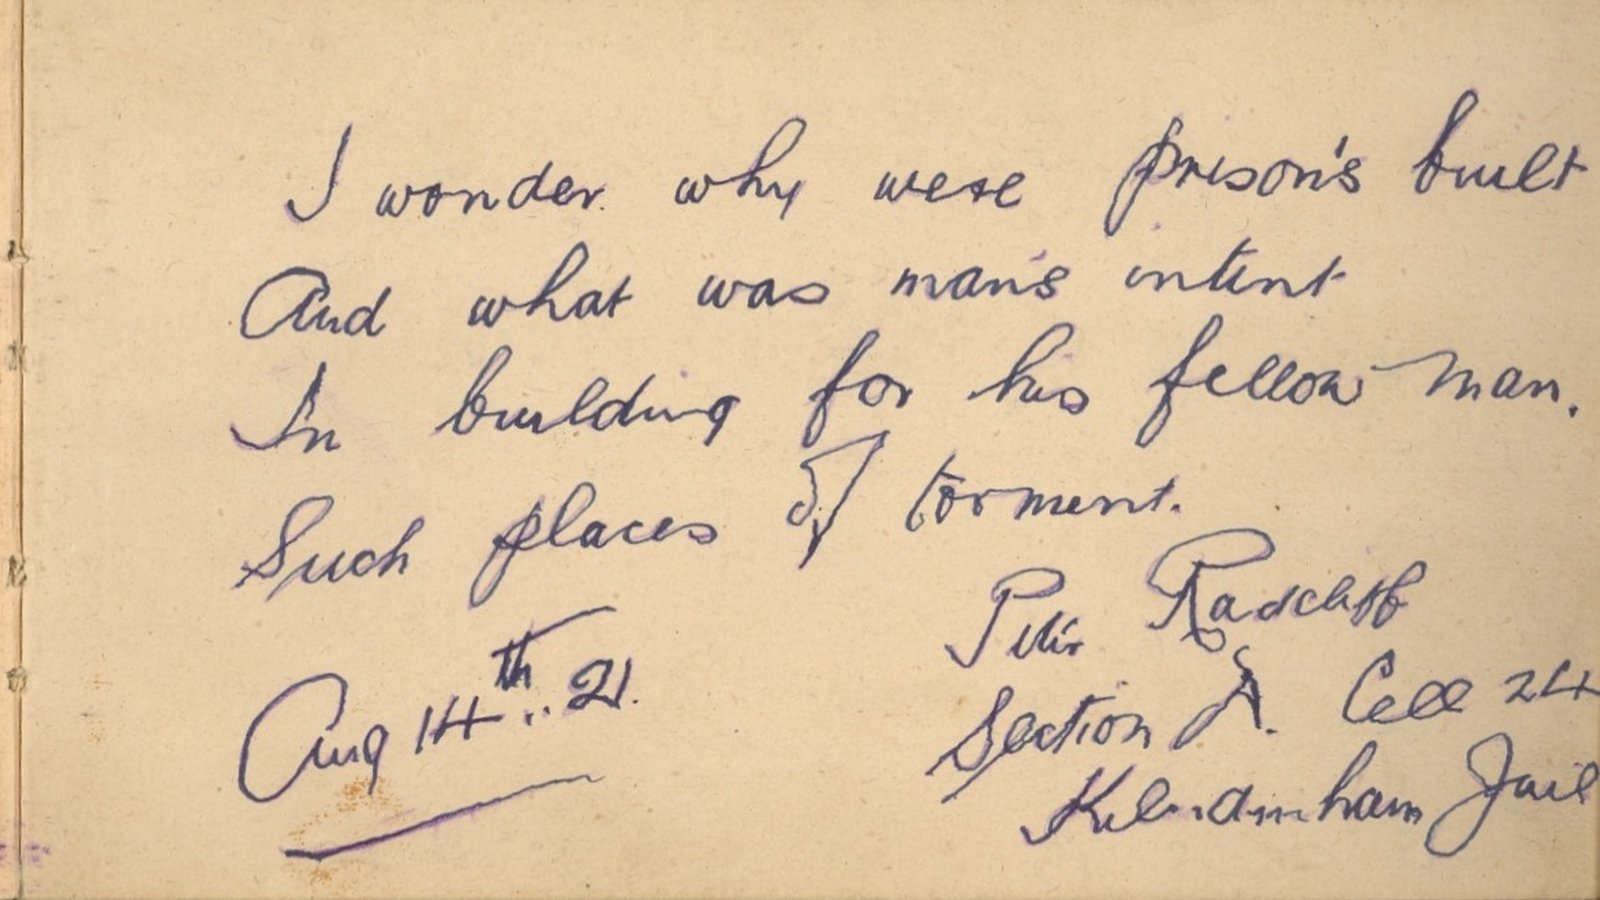 I wonder why were prison's built
And what was man's intent
In building for his fellow man.
Such places of torment.
Peter Radcliff
Section A. Cell 24
Kilmainham Jail
Aug 14th.. 21.